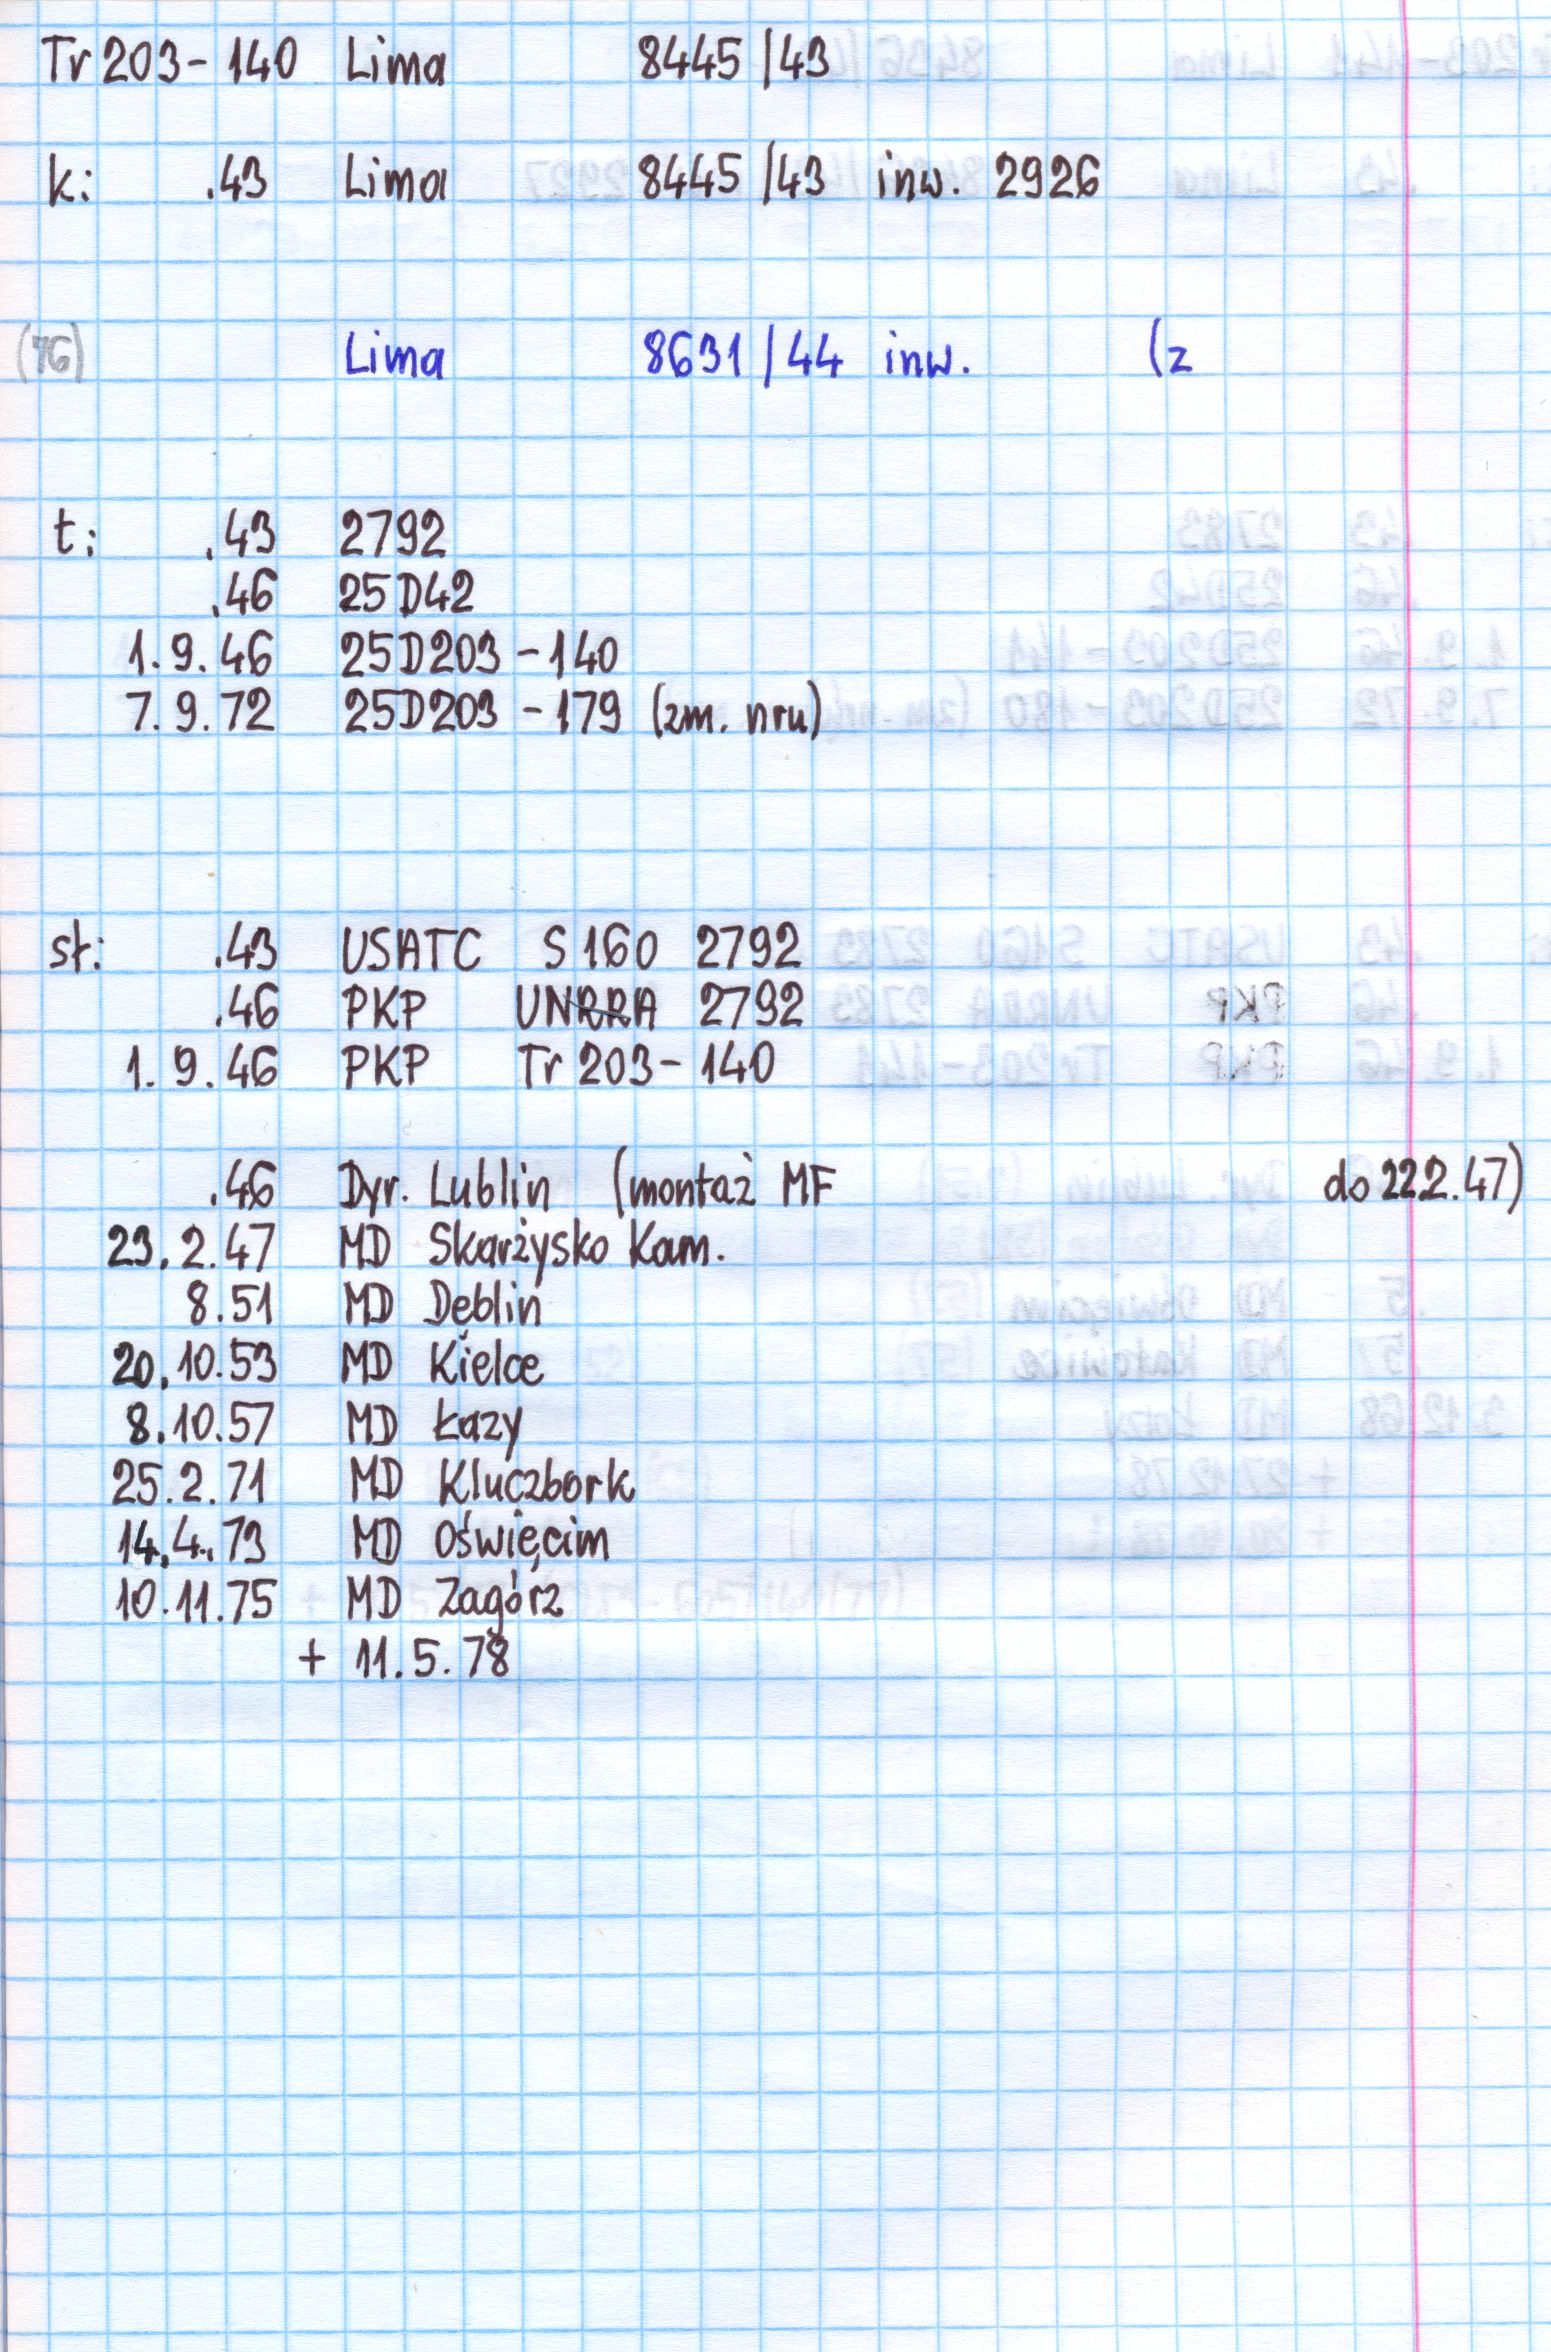 Tr 203-140 Lima 8445/43
k: .43 Lima 8445/43 inw. 2926
(76) Lima 8631/44 inw. (z
t: .43 2792
.46 25D42
1.9.46 25D203-140
7.9.72 25D203-179 (zm. nru)
sł: .43 USATC S160 2792
.46 PKP UNRRA 2792
1.9.46 PKP Tr 203-140
.46 Dyr. Lublin (montaż MF do 22.2.47)
23.2.47 MD Skarżysko Kam.
8.51 MD Dęblin
20.10.53 MD Kielce
8.10.57 MD Łazy
25.2.71 MD Kluczbork
14.4.73 MD Oświęcim
10.11.75 MD Zagórz
+ 11.5.78